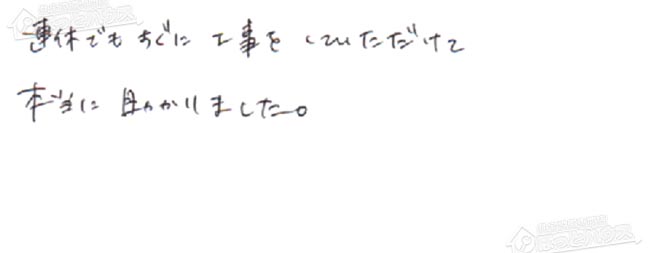 連休でもすぐに工事をしていただけて
本当に助かりました。